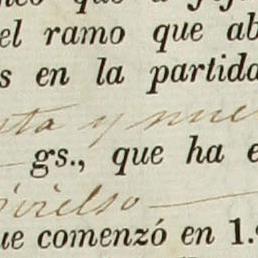 el ramo que ab
s en la partida
ta y nue
gs., que ha e
ue comenzó en 1.º